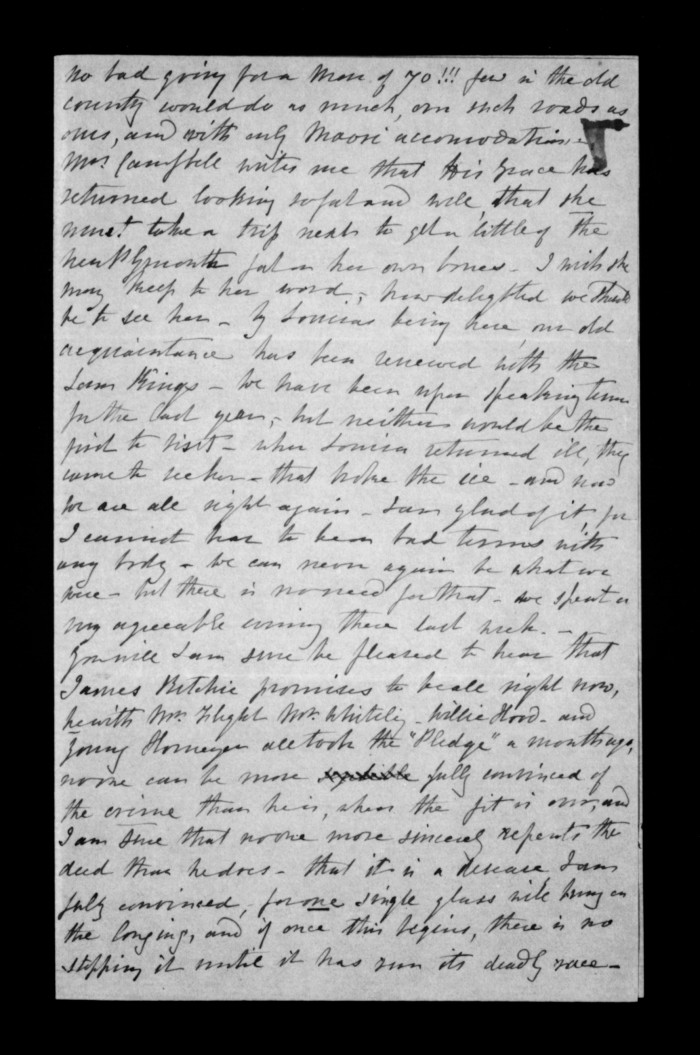 no bad going for a man of 70!!! few in the old
country would do as much, on such roads as
ours, and with only Maori accomodation -
Mrs. Campbell writes me that His Grace has
returned looking so fat and well, that she
must take a trip next to get a little of the
New Plymouth fat on her own bones - I wish she
may keep to her word; how delighted we should
be to see her - By Louisas being here, our old
acquaintance has been renewed with the
Sam Kings - We have been upon speaking terms
for the last year, - but neither would be the
first to visit - when Louisa returned ill, they
came to see her - that broke the ice - and now
we are all right again - I am glad of it, for
I cannot bear to be on bad terms with
any body - We can never again be what we
were - but there is no need for that - we spent a
very agreeable evening there last week. -
You will I am sure be pleased to hear that
James Ritchie promises to be all right now,
he with Mr. Flight Mr. Whiteley - Willie Hood - and
young all took the "Pledge" a month ago,
no one can be more fully convinced of
the crime than he is, when the fit is over, and
I am sure that no one more sincerely repents the
deed than he does - that it is a disease I am
fully convinced, for one single glass will bring on
the longing, and if once this begins, there is no
stopping it until it has run its deadly race -